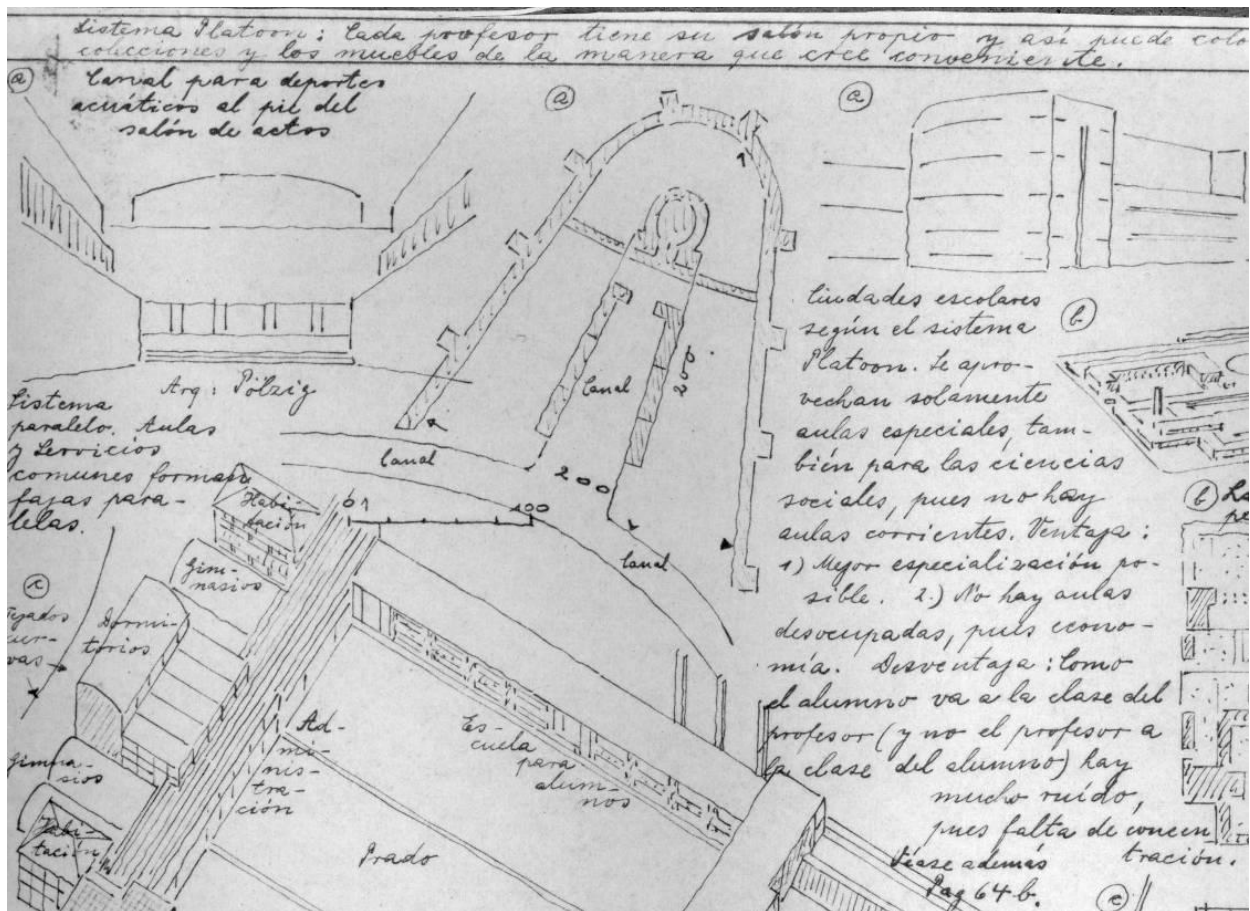 Sistema Platoon: Cada profesor tiene su salón propio y así puede colo
colecciones y los muebles de la manera que cree conveniente.
a
Canal para deportes
acuáticos al pie del
salón de actos
Arq: Pölzig
a
1
Canal
200
Canal
200
Canal
0 1
100
a
Ciudades escolares
según el sistema
Platoon. Se apro-
vechan solamente
aulas especiales, tam-
bién para las ciencias
sociales, pues no hay
aulas corrientes. Ventaja:
1) Mejor especialización po-
sible. 2.) No hay aulas
desocupadas, pues econo-
mía. Desventaja: Como
el alumno va a la clase del
profesor (y no el profesor a
la clase del alumno) hay
mucho ruido,
pues falta de concen
tración.
Véase además
Pag 64 b.
b
b
La
pe
e
Sistema
paralelo. Aulas
y Servicios
comunes forman
fajas para-
lelas.
c
Tejados
cur-
vas
Habi-
tación
Gim-
nasios
Dormi-
torios
Gimna-
sios
Habi-
tación
Ad-
mi-
nis-
tra-
ción
Es-
cuela
para
alum-
nos
Prado